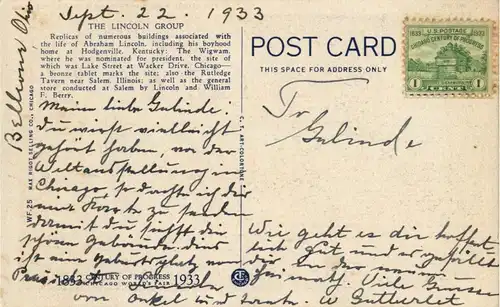 Sept. 22 1933
Bellevue, Ohio
THE LINCOLN GROUP
Replicas of numerous buildings associated with
the life of Abraham Lincoln, including his boyhood
home at Hodgenville, Kentucky: The Wigwam,
where he was nominated for president, the site of
which was Lake Street at Wacker Drive. Chicago—
a bronze tablet marks the site; also the Rutledge
Tavern near Salem, Illinois; as well as the general
store conducted at Salem by Lincoln and William
F. Berry.
Meine liebe Gelinde!
Du wirst vielleicht
gehört haben, von der
Weltausstellung in
Chicago, so dachte ich dir
eine Karte zu senden
damit du siehst die
schönen Gebäude. dies
ist eine Geburtsplatz von
1833 CENTURY OF PROGRESS 1933
CHICAGO WORLD'S FAIR
von Onkel und Tante. W Guttereit
WF.25 MAX RIGOT SELLING CO., CHICAGO
C. T. ART-COLORTONE
POST CARD
THIS SPACE FOR ADDRESS ONLY
U.S. POSTAGE
1833 1933
CHICAGO CENTURY OF PROGRESS
1 CENT 1
To
Gelinde
Wie geht es dir hoffent
lich gut und es gefällt
dir in der neuen
Heimath. Viele Grüsse